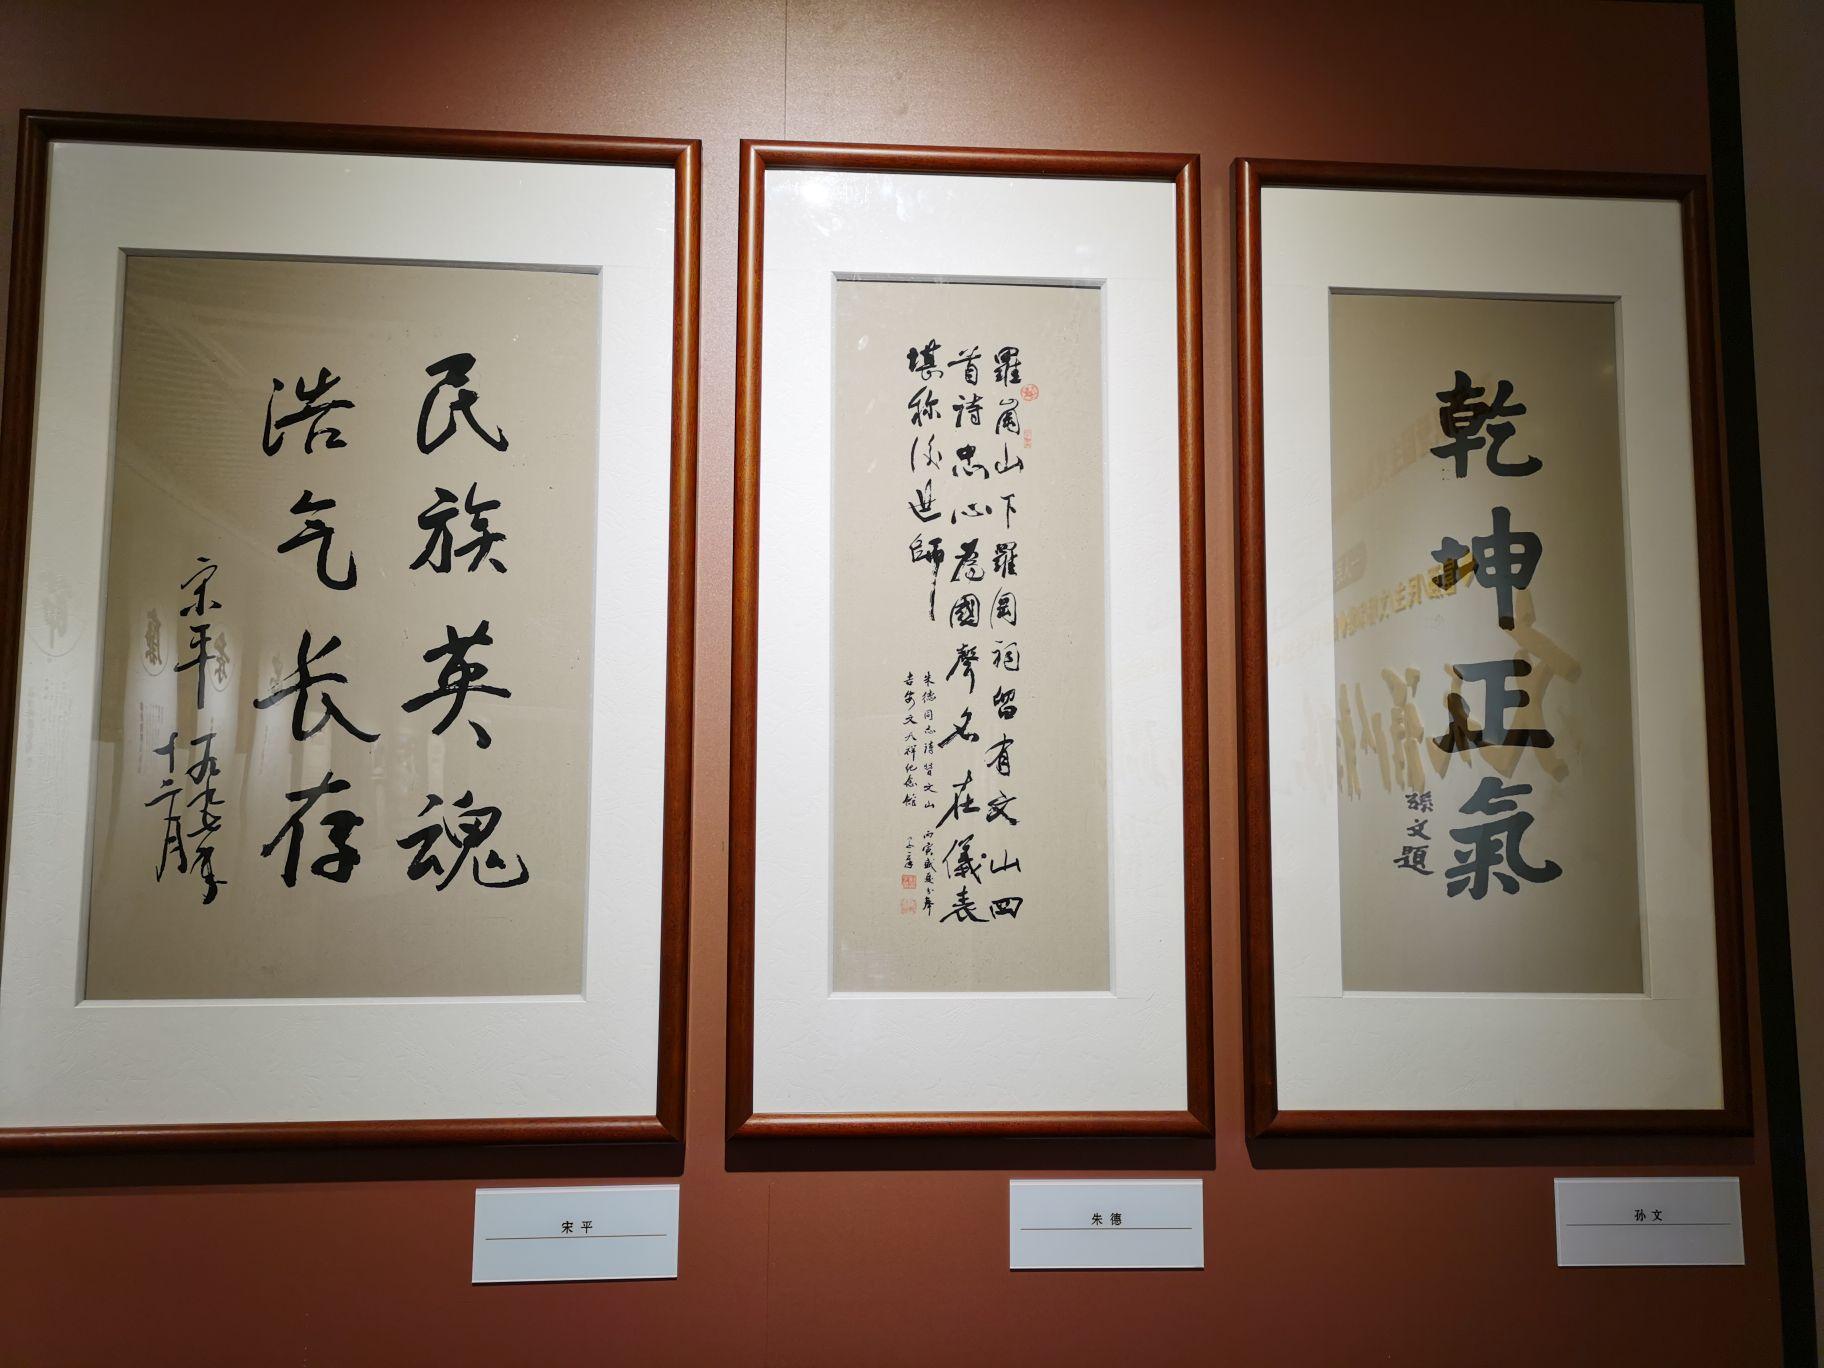 乾坤正氣
孫文題
羅崗山下羅岡祠留有文山四
首詩忠心為國聲名在儀表
堪称後進師
朱德同志詩贊文山
吉安文天祥纪念館
丙寅盛夏
民族英魂
浩气长存
宋平
一九九七年
十二月
宋平
朱德
孙文